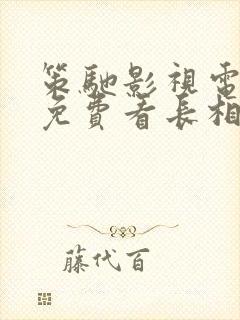 策馳影視電
免費看長相
藤代百